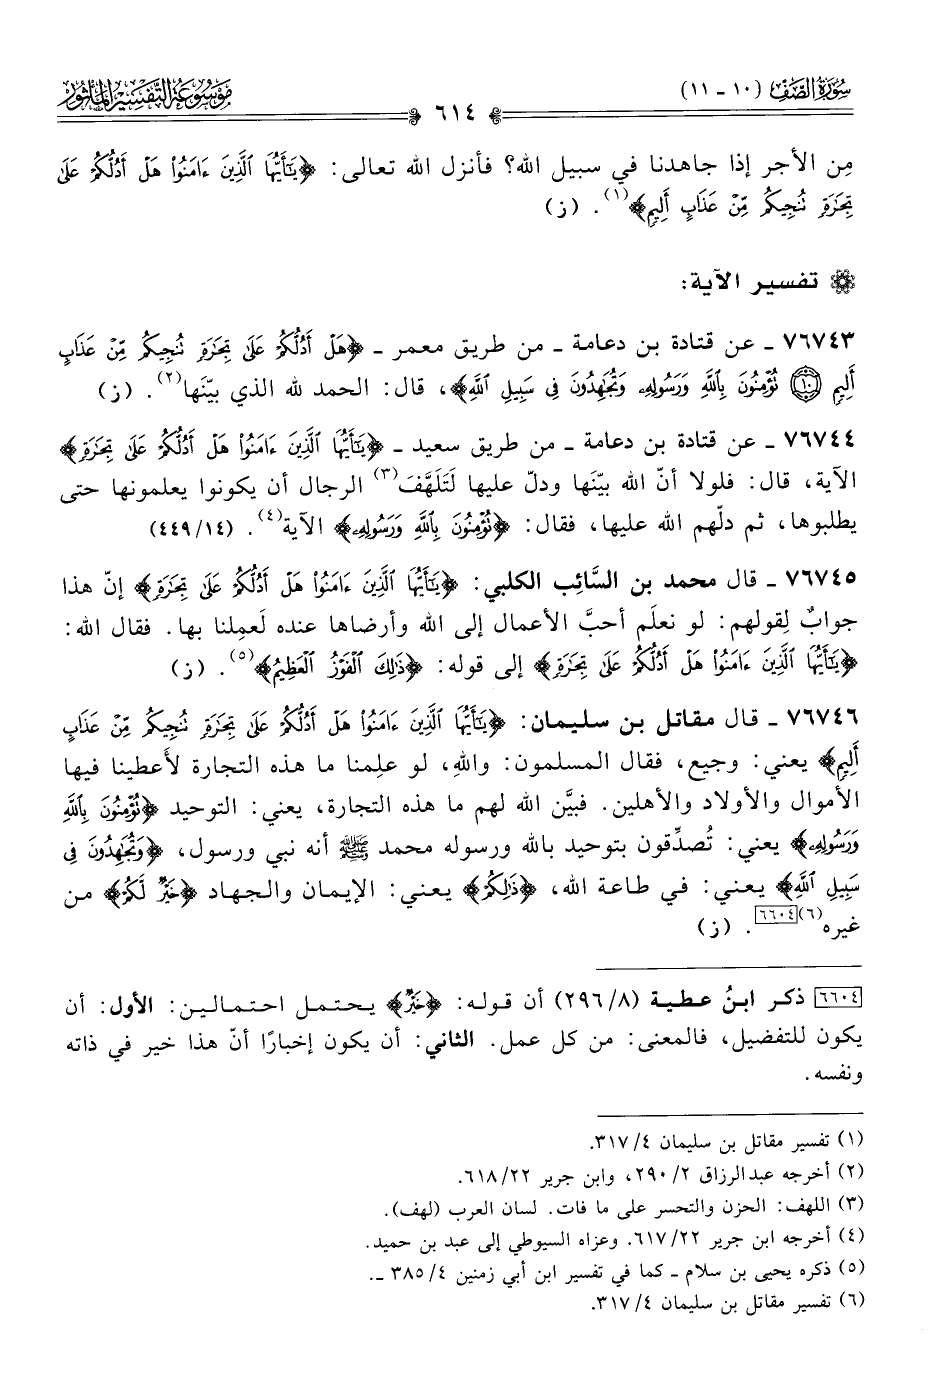 سُورَةُ الصَّفِّ (١٠ - ١١)
٦١٤
مَوْسُوعَةُ التَّفْسِيرِ المَأْثُورِ
مِن الأجر إذا جاهدنا في سبيل الله؟ فأنزل الله تعالى: ﴿يَٰٓأَيُّهَا ٱلَّذِينَ ءَامَنُوا۟ هَلْ أَدُلُّكُمْ عَلَىٰ
تِجَٰرَةٍ تُنجِيكُم مِّنْ عَذَابٍ أَلِيمٍ﴾(١). (ز)
تفسير الآية:
٧٦٧٤٣ - عن قتادة بن دعامة - من طريق معمر - ﴿هَلْ أَدُلُّكُمْ عَلَىٰ تِجَٰرَةٍ تُنجِيكُم مِّنْ عَذَابٍ
أَلِيمٍ ١٠ تُؤْمِنُونَ بِٱللَّهِ وَرَسُولِهِۦ وَتُجَٰهِدُونَ فِى سَبِيلِ ٱللَّهِ﴾، قال: الحمد لله الذي بيّنَها(٢). (ز)
٧٦٧٤٤ - عن قتادة بن دعامة - من طريق سعيد - ﴿يَٰٓأَيُّهَا ٱلَّذِينَ ءَامَنُوا۟ هَلْ أَدُلُّكُمْ عَلَىٰ تِجَٰرَةٍ﴾
الآية، قال: فلولا أنّ الله بيّنَها ودلّ عليها لَتَلَهَّفَ(٣) الرجال أن يكونوا يعلمونها حتى
يطلبوها، ثم دلّهم الله عليها، فقال: ﴿تُؤْمِنُونَ بِٱللَّهِ وَرَسُولِهِۦ﴾ الآية(٤). (٤٤٩/١٤)
٧٦٧٤٥ - قال محمد بن السَّائب الكلبي: ﴿يَٰٓأَيُّهَا ٱلَّذِينَ ءَامَنُوا۟ هَلْ أَدُلُّكُمْ عَلَىٰ تِجَٰرَةٍ﴾ إنّ هذا
جوابٌ لِقولهم: لو نعلَم أحبَّ الأعمال إلى الله وأرضاها عنده لَعمِلنا بها. فقال الله:
﴿يَٰٓأَيُّهَا ٱلَّذِينَ ءَامَنُوا۟ هَلْ أَدُلُّكُمْ عَلَىٰ تِجَٰرَةٍ﴾ إلى قوله: ﴿ذَٰلِكَ ٱلْفَوْزُ ٱلْعَظِيمُ﴾(٥). (ز)
٧٦٧٤٦ - قال مقاتل بن سليمان: ﴿يَٰٓأَيُّهَا ٱلَّذِينَ ءَامَنُوا۟ هَلْ أَدُلُّكُمْ عَلَىٰ تِجَٰرَةٍ تُنجِيكُم مِّنْ عَذَابٍ
أَلِيمٍ﴾ يعني: وجيع، فقال المسلمون: واللهِ، لو علِمنا ما هذه التجارة لأَعطينا فيها
الأموال والأولاد والأهلين. فبيَّن الله لهم ما هذه التجارة، يعني: التوحيد ﴿تُؤْمِنُونَ بِٱللَّهِ
وَرَسُولِهِۦ﴾ يعني: تُصدِّقون بتوحيد بالله ورسوله محمد ﷺ أنه نبي ورسول، ﴿وَتُجَٰهِدُونَ فِى
سَبِيلِ ٱللَّهِ﴾ يعني: في طاعة الله، ﴿ذَٰلِكُمْ﴾ يعني: الإيمان والجهاد ﴿خَيْرٌ لَّكُمْ﴾ من
غيره(٦) ٦٦٠٤. (ز)
٦٦٠٤ ذكر ابنُ عطية (٢٩٦/٨) أن قوله: ﴿خَيْرٌ﴾ يحتمل احتمالين: الأول: أن
يكون للتفضيل، فالمعنى: من كل عمل. الثاني: أن يكون إخبارًا أنّ هذا خير في ذاته
ونفسه.
(١) تفسير مقاتل بن سليمان ٣١٧/٤.
(٢) أخرجه عبدالرزاق ٢٩٠/٢، وابن جرير ٦١٨/٢٢.
(٣) اللهف: الحزن والتحسر على ما فات. لسان العرب (لهف).
(٤) أخرجه ابن جرير ٦١٧/٢٢. وعزاه السيوطي إلى عبد بن حميد.
(٥) ذكره يحيى بن سلام - كما في تفسير ابن أبي زمنين ٣٨٥/٤ -.
(٦) تفسير مقاتل بن سليمان ٣١٧/٤.